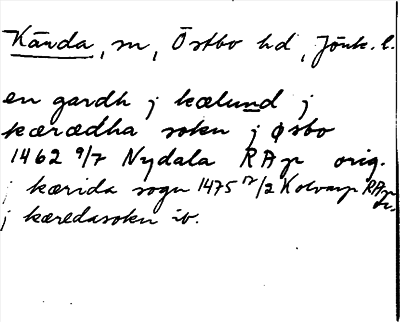 Kärda, sn, Östbo hd, Jönk. l.
en gardh j kælund j
kærædha sokn j øsbo
1462 9/7 Nydala RAp orig.
j kærida sogn 1475 17/2 RAp or.
j kæredasokn ib.